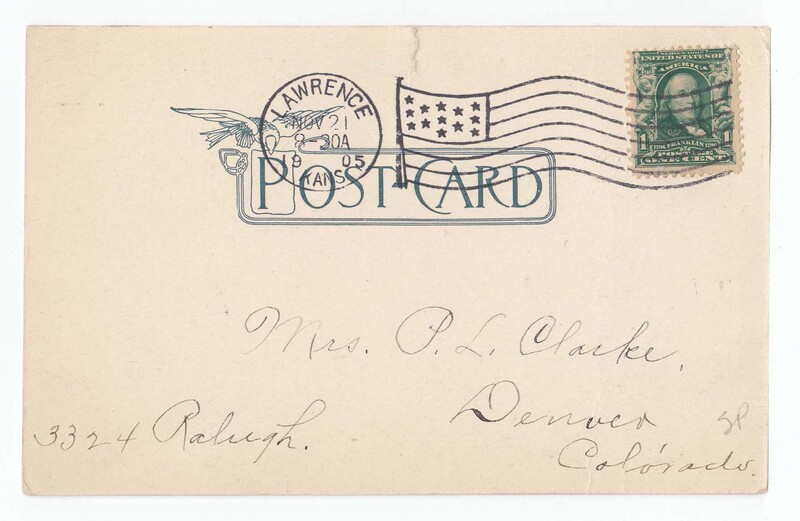 LAWRENCE
NOV 21
8-30A
1905
KANS.
SERIES 1902
UNITED STATES OF
AMERICA
1706 FRANKLIN 1790
1 POSTAGE 1
ONE CENT
POST CARD
Mrs. P. L. Clarke,
Denver
Colorado.
3324 Raleigh.
SP